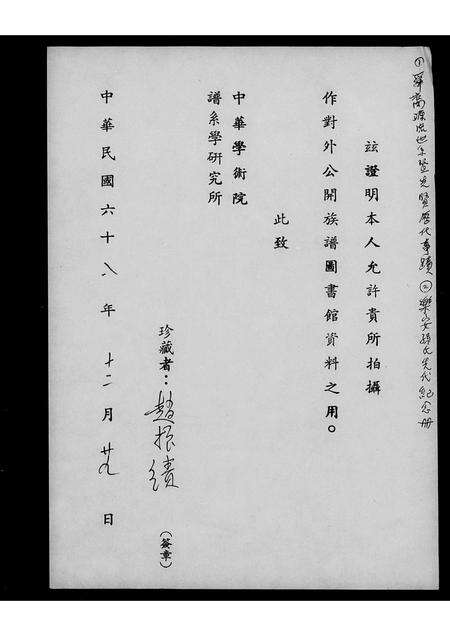 ① 源流世系暨先賢歷代事蹟 ② 樂安孫氏先代紀念册
茲證明本人允許貴所拍攝
作對外公開族譜圖書館資料之用。
此致
中華學術院
譜系學研究所
珍藏者：趙振績（簽章）
中華民國六十八年十二月廿九日